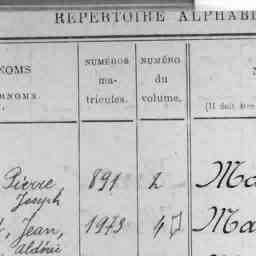 RÉPERTOIRE ALPHABÉ
NOMS
RNOMS.
NUMÉROS
ma-
tricules.
NUMÉRO
du
volume.
(Il doit être
Pierre 891 2 Ma
Joseph
Jean, 1973 47 Ma